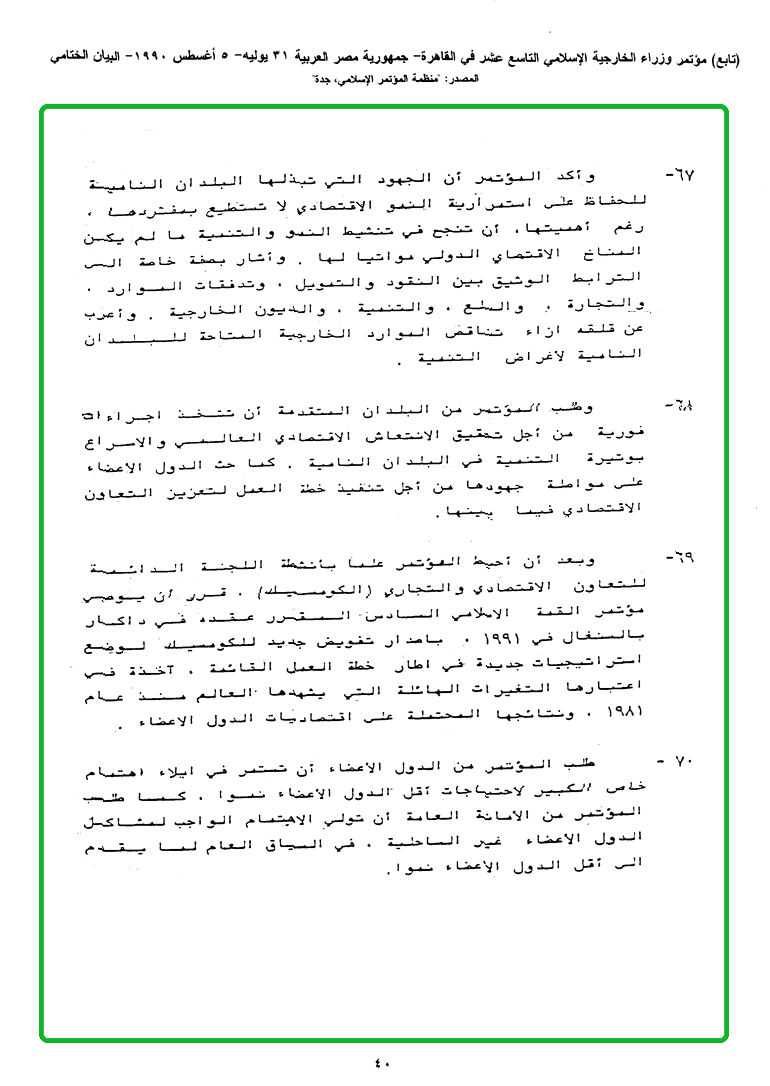 (تابع) مؤتمر وزراء الخارجية الإسلامي التاسع عشر في القاهرة- جمهورية مصر العربية ٣١ يوليه- ٥ أغسطس ١٩٩٠- البيان الختامي
المصدر: "منظمة المؤتمر الإسلامي، جدة"
٦٧- وأكد المؤتمر أن الجهود التي تبذلها البلدان النامية
للحفاظ على استمرارية النمو الاقتصادي لا تستطيع بمفردها ،
رغم أهميتها، أن تنجح في تنشيط النمو والتنمية ما لم يكن
المناخ الاقتصاي الدولي مواتيا لها . وأشار بصفة خاصة الى
الترابط الوثيق بين النقود والتمويل ، وتدفقات الموارد ،
والتجارة ، والسلع ، والتنمية ، والديون الخارجية . وأعرب
عن قلقه ازاء تناقص الموارد الخارجية المتاحة للبلدان
النامية لأغراض التنمية .
٦٨- وطلب المؤتمر من البلدان المتقدمة أن تتخذ اجراءات
فورية من أجل تحقيق الانتعاش الاقتصادي العالمي والاسراع
بوتيرة التنمية في البلدان النامية . كما حث الدول الاعضاء
على مواصلة جهودها من أجل تنفيذ خطة العمل لتعزيز التعاون
الاقتصادي فيما بينها.
٦٩- وبعد أن أحيط المؤتمر علما بأنشطة اللجنة الدائمة
للتعاون الاقتصادي والتجاري (الكومسيك) ، قرر أن يوصي
مؤتمر القمة الاسلامي السادس المقرر عقده في داكار
بالسنغال في ١٩٩١ ، باصدار تفويض جديد للكومسيك لوضع
استراتيجيات جديدة في اطار خطة العمل القائمة ، آخذة في
اعتبارها التغيرات الهائلة التي يشهدها العالم منذ عام
١٩٨١ ، ونتائجها المحتملة على اقتصاديات الدول الاعضاء .
٧٠ - طلب المؤتمر من الدول الاعضاء أن تستمر في ايلاء اهتمام
خاص الكبير لاحتياجات أقل الدول الاعضاء نموا . كما طلب
المؤتمر من الامانة العامة أن تولي الاهتمام الواجب لمشاكل
الدول الاعضاء غير الساحلية ، في السياق العام لما يقدم
الى أقل الدول الاعضاء نموا.
٤٠